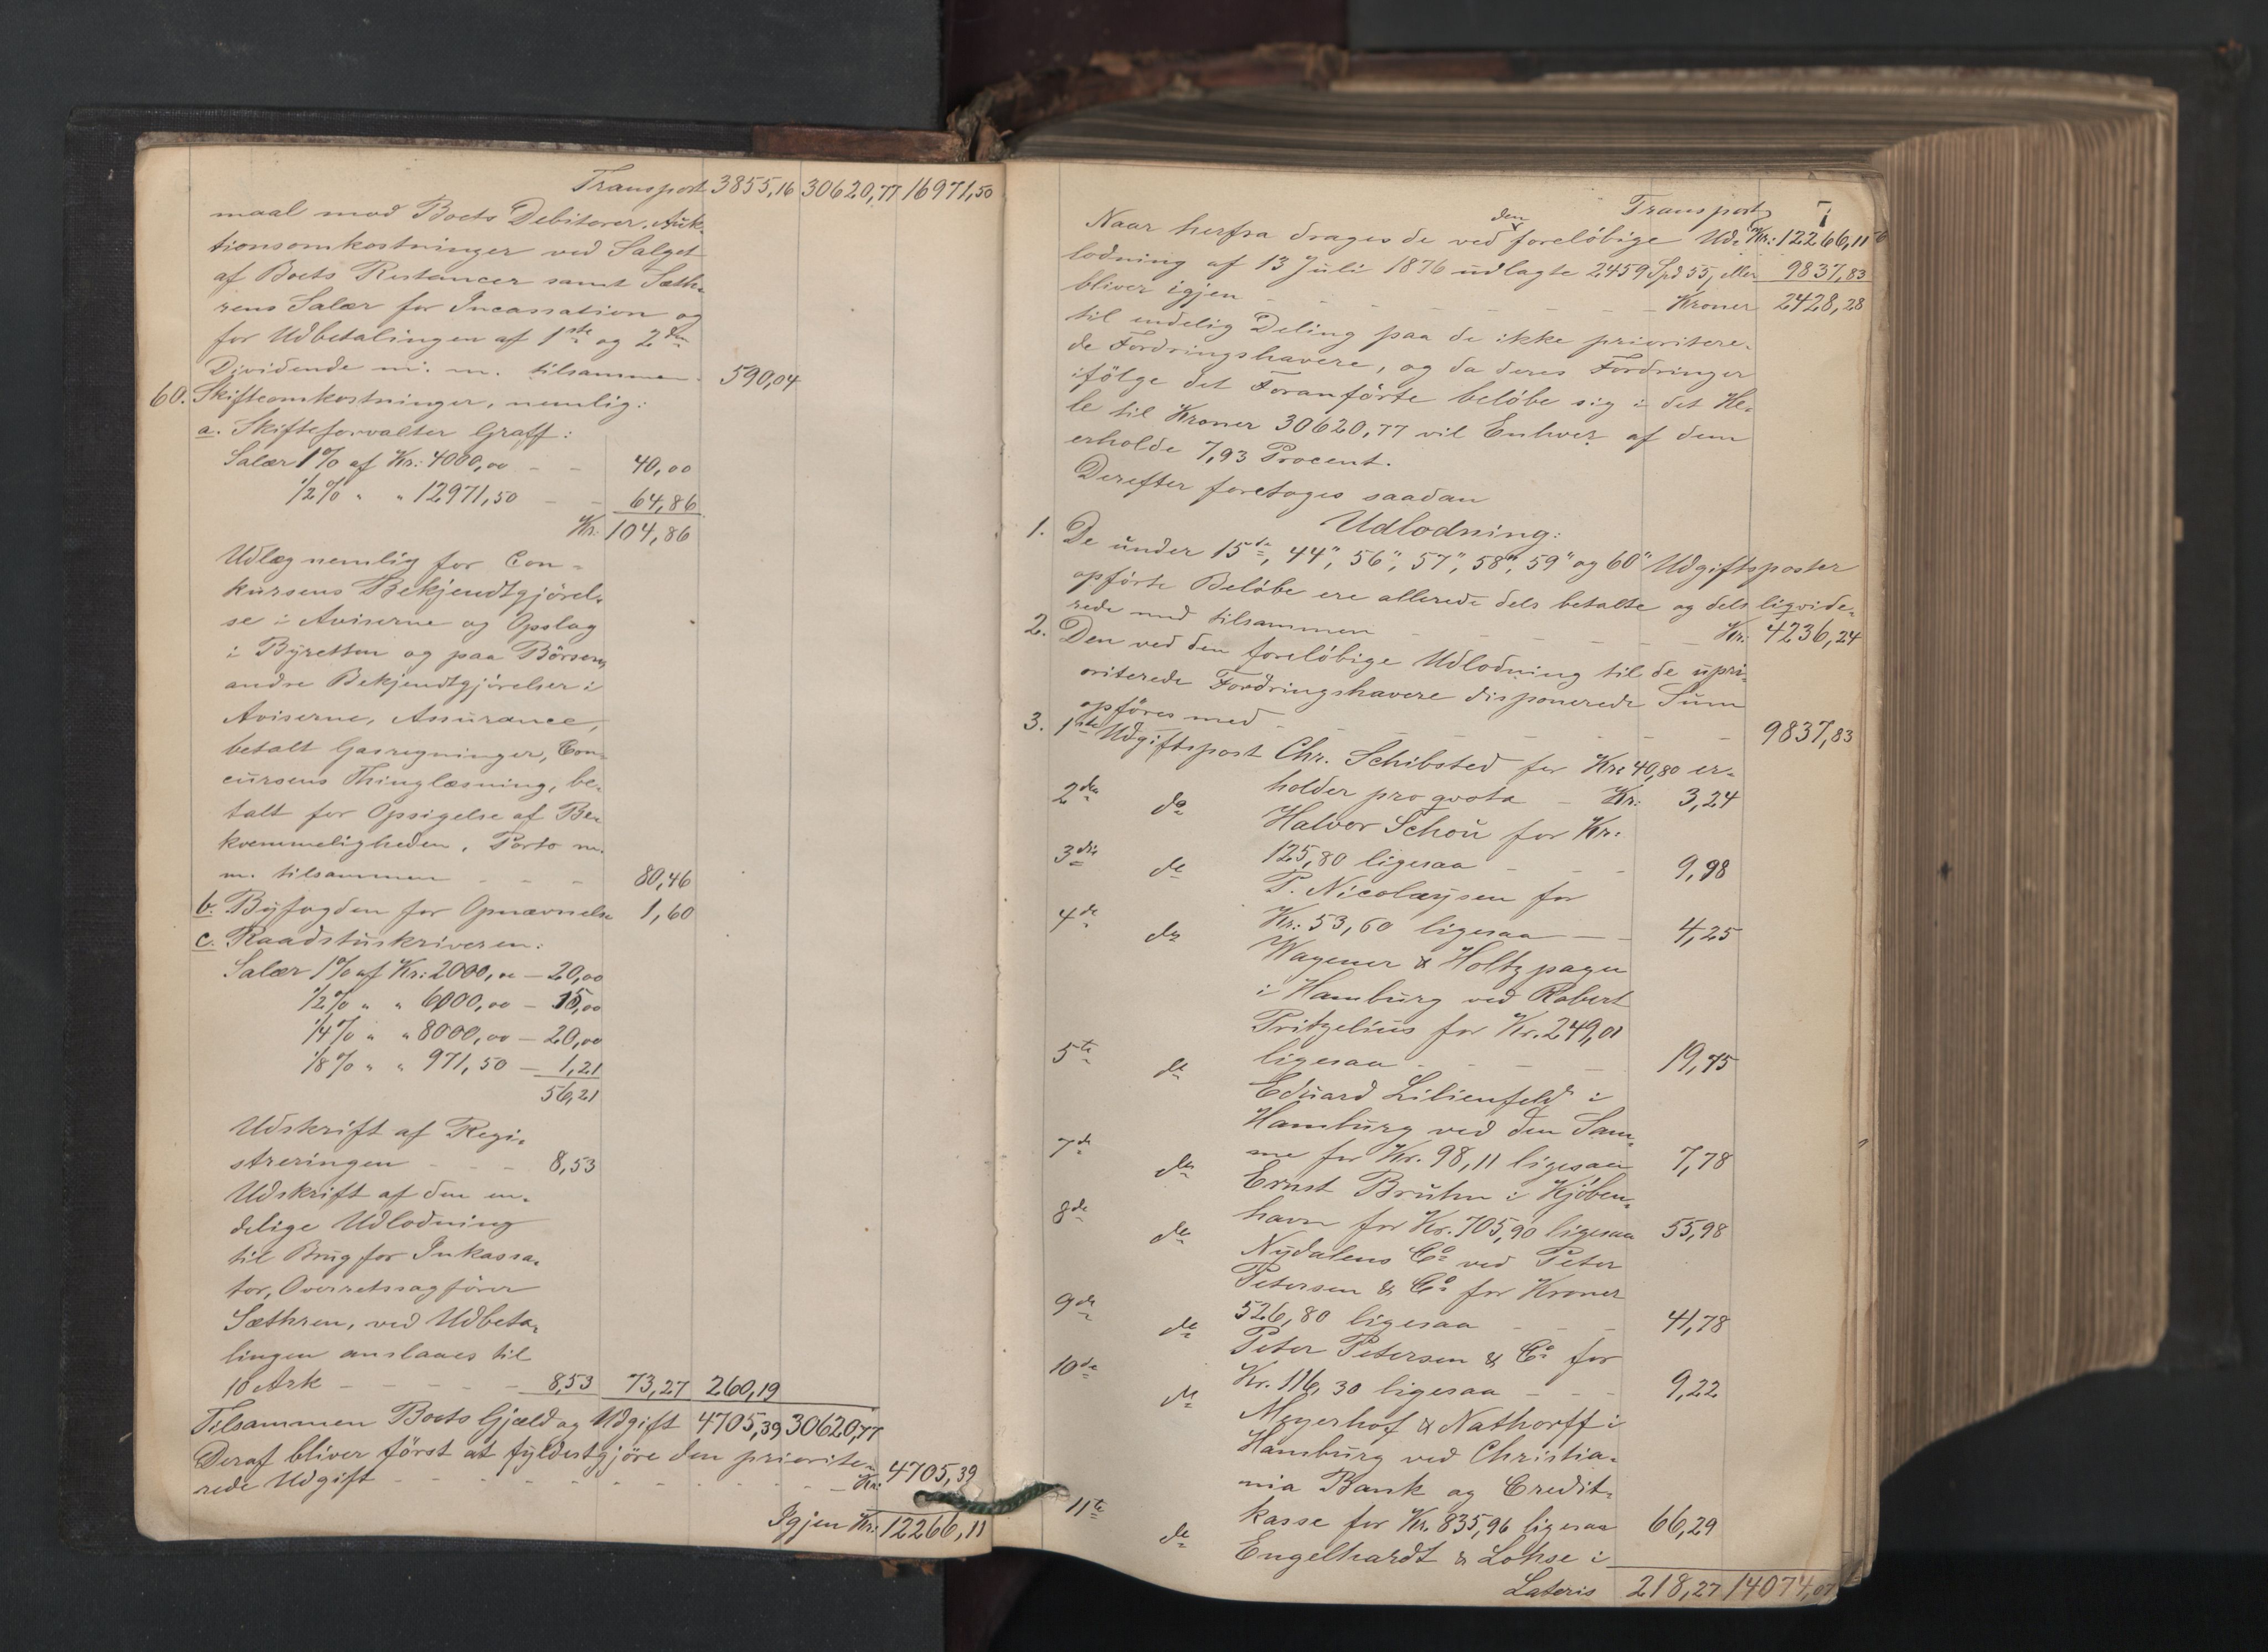 Transport 3855,16 30620,77 16971,50
maal mod Boets Debitorer, Auk-
tionsomkostninger ved Salget
af Boets Restancer samt Sæth-
rens Salær for Incassation og
for Udbetalingen af 1ste og 2den
Dividende m. m. tilsammen 590,04
60. Skifteomkostninger, nemlig:
a. Skifteforvalter Graff:
Salær 1% af Kr: 4000,00 - - 40,00
1/2% " " 12971,50 - - 64,86
Kr: 104,86
Udlæg nemlig for Con-
kursens Bekjendtgjörel-
se i Aviserne og Opslag
i Byretten og paa Börsen,
andre Bekjendtgjörelser i
Aviserne, Assurance,
betalt Gasregninger, Con-
cursens Thinglæsning, be-
talt for Opsigelse af Be-
kvemmeligheden, Porto m.
m. tilsammen - - - 80,46
b. Byfogden for Opnævnelse 1,60
c. Raadstuskriveren:
Salær 1% af Kr: 2000,00 - 20,00
1/2% " " 6000,00 - 15,00
1/4% " " 8000,00 - 20,00
1/8% " " 971,50 - 1,21
56,21
Udskrift af Regi-
streringen - - - 8,53
Udskrift af den en-
delige Udlodning
til Brug for Inkassa-
tor, Overretssagförer
Sæthren, ved Udbeta-
lingen anslaaes til
10 Ark - - - - - 8,53 73,27 260,19
Tilsammen Boets Gjæld og Udgift 4705,39 30620,77
Deraf bliver först at fyldestgjöre den priorite-
rede Udgift - - - - - - - - Kr: 4705,39
Igjen Kr: 12266,11
7
Transport Kr: 12266,11
Naar herfra drages de ved den forelöbige Ud-
lodning af 13 Juli 1876 udlagte 2459 Spd 55, eller 9837,83
bliver igjen - - - - - - Kroner 2428,28
til endelig Deling paa de ikke prioritere-
de Fordringshavere, og da deres Fordringer
ifölge det Foranförte belöbe sig i det He-
le til Kroner 30620,77 vil Enhver af dem
erholde 7,93 Procent.
Derefter foretoges saadan
Udlodning:
1. De under 15de, 44", 56", 57", 58", 59" og 60" Udgiftsposter
opförte Belöbe ere allerede dels betalte og dels liqvide-
rede med tilsammen - - - - - - Kr: 4236,24
2. Den ved den forelöbige Udlodning til de upri-
oriterede Fordringshavere disponerede Sum
opföres med - - - - - - - - 9837,83
3. 1ste Udgiftspost Chr. Schibsted for Kr: 40,80 er-
holder pro qvota - Kr: 3,24
2den do Halvor Schou for Kr:
125,80 ligesaa - - - 9,98
3die do P. Nicolaysen for
Kr: 53,60 ligesaa - - 4,25
4de do Wagener & Holtzpagen
i Hamburg ved Robert
Pritzelius for Kr. 249,01
ligesaa - - - - 19,75
5te do Eduard Lilienfeld i
Hamburg ved den Sam-
me for Kr. 98,11 ligesaa 7,78
7de do Ernst Bruhn i Kjöben-
havn for Kr. 705,90 ligesaa 55,98
8de do Nydalens Co ved Peter
Petersen & Co for Kroner
526,80 ligesaa - - - 41,78
9de do Peter Petersen & Co for
Kr. 116,30 ligesaa - - - 9,22
10de do Meyerhof & Nathorff i
Hamburg ved Christia-
nia Bank og Credit-
kasse for Kr. 835,96 ligesaa 66,29
11te do Engelhardt & Lohse i
Lateris 218,27 14074,07